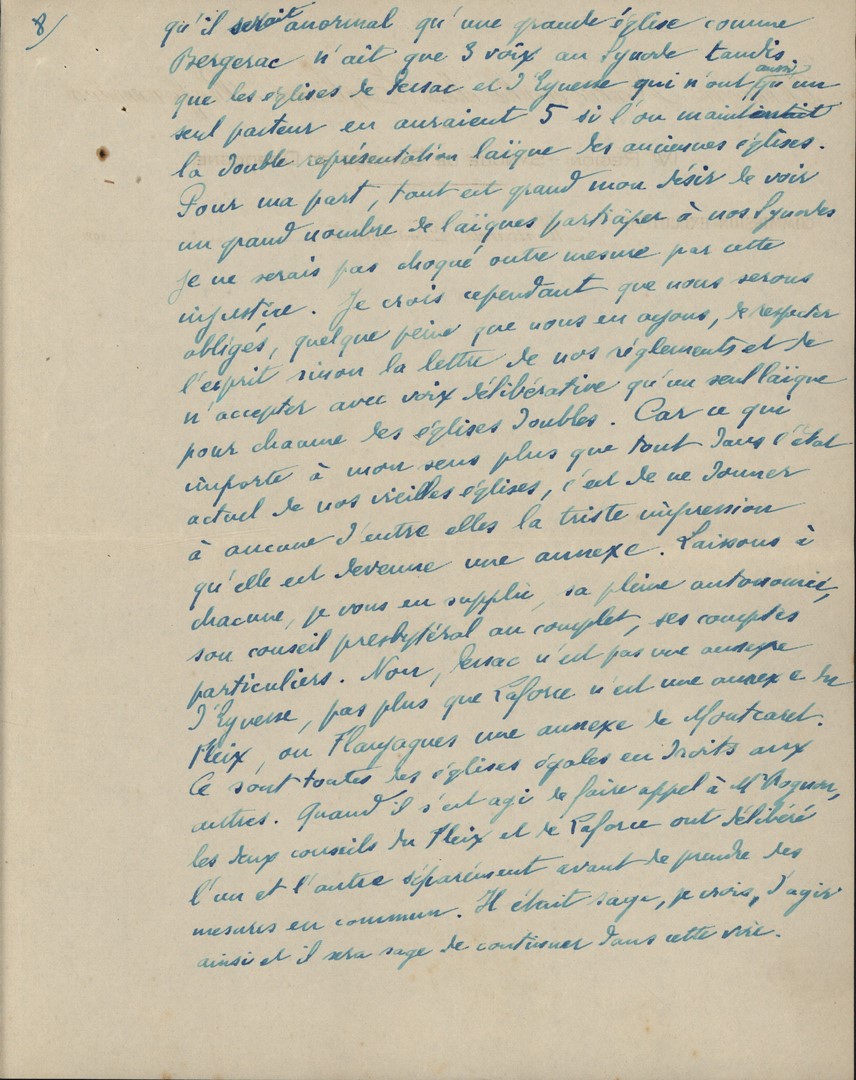 8/
qu'il serait anormal qu'une grande église comme
Bergerac n'ait que 3 voix au Synode tandis
que les églises de Gensac et d'Eynesse qui n'ont aussi qu'un
seul pasteur en auraient 5 si l'on maintenait
la double représentation laïque des anciennes églises.
Pour ma part, tant est grand mon désir de voir
un grand nombre de laïques participer à nos Synodes
je ne serais pas choqué outre mesure par cette
injustice. Je crois cependant que nous serons
obligés, quelque peine que nous en ayons, de respecter
l'esprit sinon la lettre de nos réglements et de
n'accepter avec voix délibérative qu'un seul laïque
pour chacune des églises doubles. Car ce qui
importe à mon sens plus que tout dans l'état
actuel de nos vieilles églises, c'est de ne donner
à aucune d'entre elles la triste impression
qu'elle est devenue une annexe. Laissons à
chacune, je vous en supplie, sa pleine autonomie,
son conseil presbytéral au complet, ses comptes
particuliers. Non, Gensac n'est pas une annexe
d'Eynesse, pas plus que Laforce n'est une annexe du
Fleix, ou Flaujagues une annexe de Montcaret.
Ce sont toutes des églises égales en droits aux
autres. Quand il s'est agi de faire appel à Mr
les deux conseils du Fleix et de Laforce ont délibéré
l'un et l'autre séparément avant de prendre des
mesures en commun. Il était sage, je crois, d'agir
ainsi et il sera sage de continuer dans cette voie.